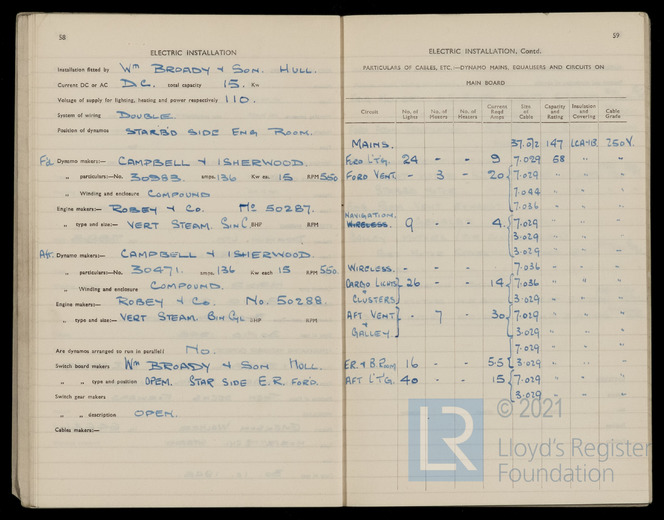 58
ELECTRIC INSTALLATION
Installation fitted by Wm BROADY & SON. HULL.
Current DC or AC D.C. total capacity 15. Kw
Voltage of supply for lighting, heating and power respectively 110.
System of wiring DOUBLE.
Position of dynamos STARB'D SIDE ENG ROOM.
F'd Dynamo makers:— CAMPBELL & ISHERWOOD.
„ particulars:—No. 30983. amps. 136 Kw ea. 15 RPM 550
„ Winding and enclosure COMPOUND
Engine makers:— ROBEY & Co. No 50287.
„ type and size:— VERT STEAM. BHP RPM
Aft. Dynamo makers:— CAMPBELL & ISHERWOOD.
„ particulars:—No. 30471. amps. 136 Kw each 15 RPM 550.
„ Winding and enclosure COMPOUND.
Engine makers:— ROBEY & Co. No. 50288.
„ type and size:— VERT STEAM. BHP RPM
Are dynamos arranged to run in parallel? No.
Switch board makers Wm BROADY & SON HULL.
„ „ type and position OPEM. STAR SIDE E.R. FOR'D.
Switch gear makers
„ „ description OPEN.
Cables makers:—
59
ELECTRIC INSTALLATION, Contd.
PARTICULARS OF CABLES, ETC.—DYNAMO MAINS, EQUALISERS AND CIRCUITS ON
MAIN BOARD
Circuit No. of Lights No. of Motors No. of Heaters Current Reqd Amps Size of Cable Capacity and Rating Insulation and Covering Cable Grade
MAINS. 37.072 147 250V.
FORD L'T'G. 24 - - 9 7.029 68 " "
FORD VENT. - 3 - 20 7.029 " " "
7.044 " " "
7.036 " " "
NAVIGATION.
WIRELESS. 9 - - 4. 7.029 " " "
3.029 " " "
3.029 " "
WIRELESS. - - - 7.036 " " "
CARGO LIGHTS 26 - - 14 7.036 " " "
& CLUSTERS 3.029 " " "
AFT VENT - 7 - 30 7.029 " " "
& GALLEY. 3.029 " " "
7.029 " " "
E.R. & B. ROOM 16 - - 5.5 3.029 " " "
AFT L'T'G. 40 - - 15 7.029 " " "
3.029 " " "
© 2021
LR
Lloyd's Register
Foundation